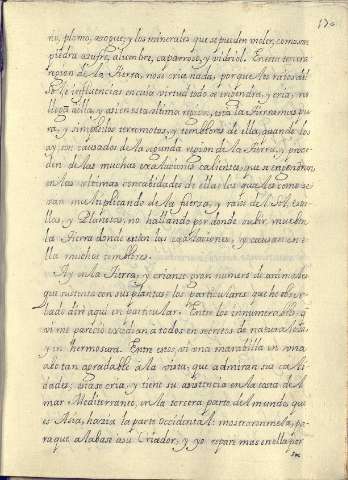 170
no, plomo, azogue, y los minerales que se pueden moler, como son
piedra azufre, alumbre, caparrosa, y vidriol. En esta tercera
region de la tierra, no se cria nada, porque los rayos del
Sol e influencias en cuya virtud todo se engendra, y cria, no
llega alla, y asi en esta ultima region, esta la tierra mas pu
ra, y simple: los terremotos, y temblores de ella, quando los
ay son causados de la segunda region de la tierra, y proce
den de las muchas exalaciones calientes, que se engendran
en las ultimas concabidades de ella: los quales como se
van multiplicando de la fuerza, y raios del Sol, estre
llas, y Planetas, no hallando por donde subir, mueben
la tierra donde estan las exalaciones, y causan en e
lla muchos temblores.
Ay en la tierra, y crianse gran numero de animales
que sustenta con sus plantas: los particulares que he obser
bado dirè aqui en particular. Entre los innumerables, q
vi me pareciò excedian a todos en secretos de naturaleza,
y in hermosura. Entre estos, vi una marabilla en una
abe tan agradable à la vista, que admiran sus cali
dades, esta se cria, y tiene su asistencia en la costa del
mar Mediterraneo, en la tercera parte del mundo, que
es Asia, hazia la parte occidental: mostraronmela, pa
ra que alabase à su Criador, y yo repare mas en ella por